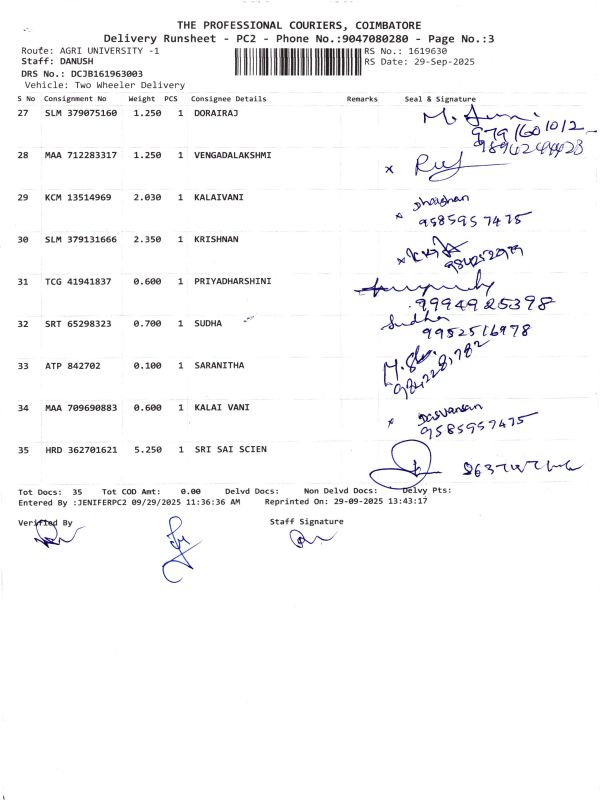 THE PROFESSIONAL COURIERS, COIMBATORE
Delivery Runsheet - PC2 - Phone No.:9047080280 - Page No.:3
Route: AGRI UNIVERSITY -1 RS No.: 1619630
Staff: DANUSH RS Date: 29-Sep-2025
DRS No.: DCJB161963003
Vehicle: Two Wheeler Delivery
S No Consignment No Weight PCS Consignee Details Remarks Seal & Signature
27 SLM 379075160 1.250 1 DORAIRAJ
9791601012
9894249423
28 MAA 712283317 1.250 1 VENGADALAKSHMI x
29 KCM 13514969 2.030 1 KALAIVANI
x 9585957475
30 SLM 379131666 2.350 1 KRISHNAN x
31 TCG 41941837 0.600 1 PRIYADHARSHINI
9994925398
32 SRT 65298323 0.700 1 SUDHA Sudha
9952516978
33 ATP 842702 0.100 1 SARANITHA
9842281782
34 MAA 709690883 0.600 1 KALAI VANI x
9585957475
35 HRD 362701621 5.250 1 SRI SAI SCIEN
Tot Docs: 35 Tot COD Amt: 0.00 Delvd Docs: Non Delvd Docs: Delvy Pts:
Entered By :JENIFERPC2 09/29/2025 11:36:36 AM Reprinted On: 29-09-2025 13:43:17
Verified By Staff Signature